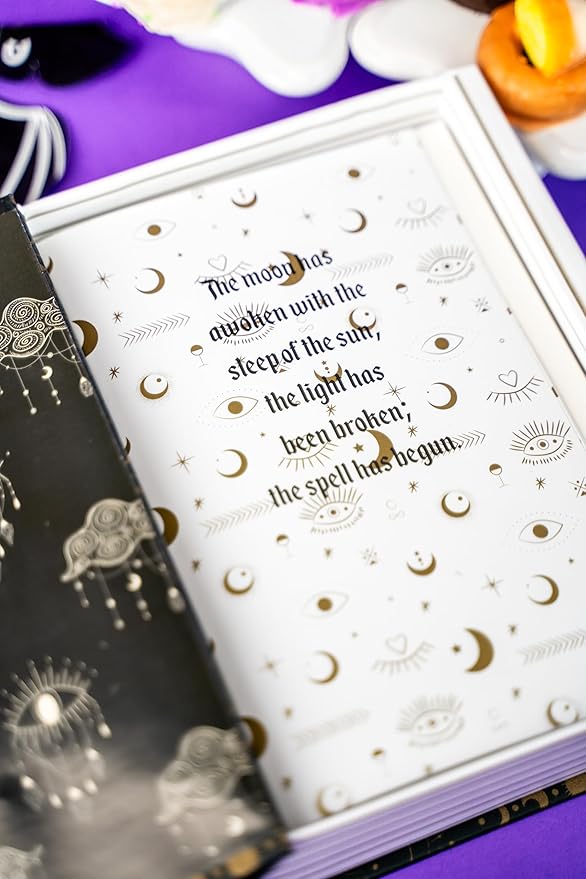 The moon has
awoken with the
sleep of the sun,
the light has
been broken;
the spell has begun.